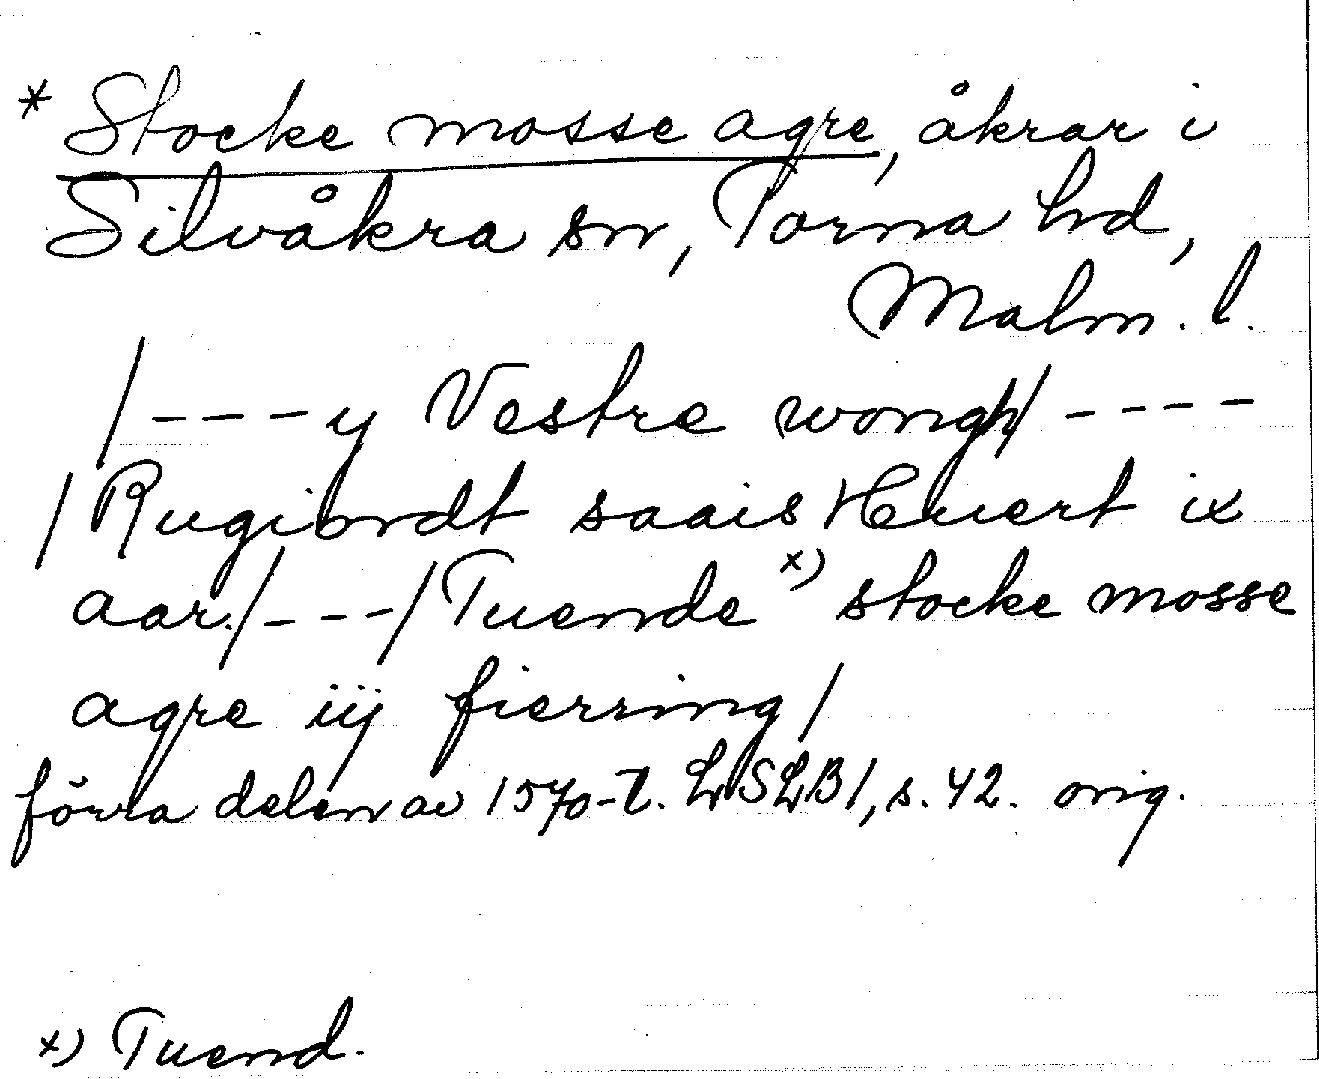 * Stocke mosse agre, åkrar i
Silvåkra sn, Torna hd,
Malm. l.
/---y Vestre wongh/----
/Rugiordt saais Huert ix
aar./---/Tuende x) stocke mosse
agre iij fierring/
förra delen av 1570-t. LSLB1, s. 42. orig.
x) Tuend.